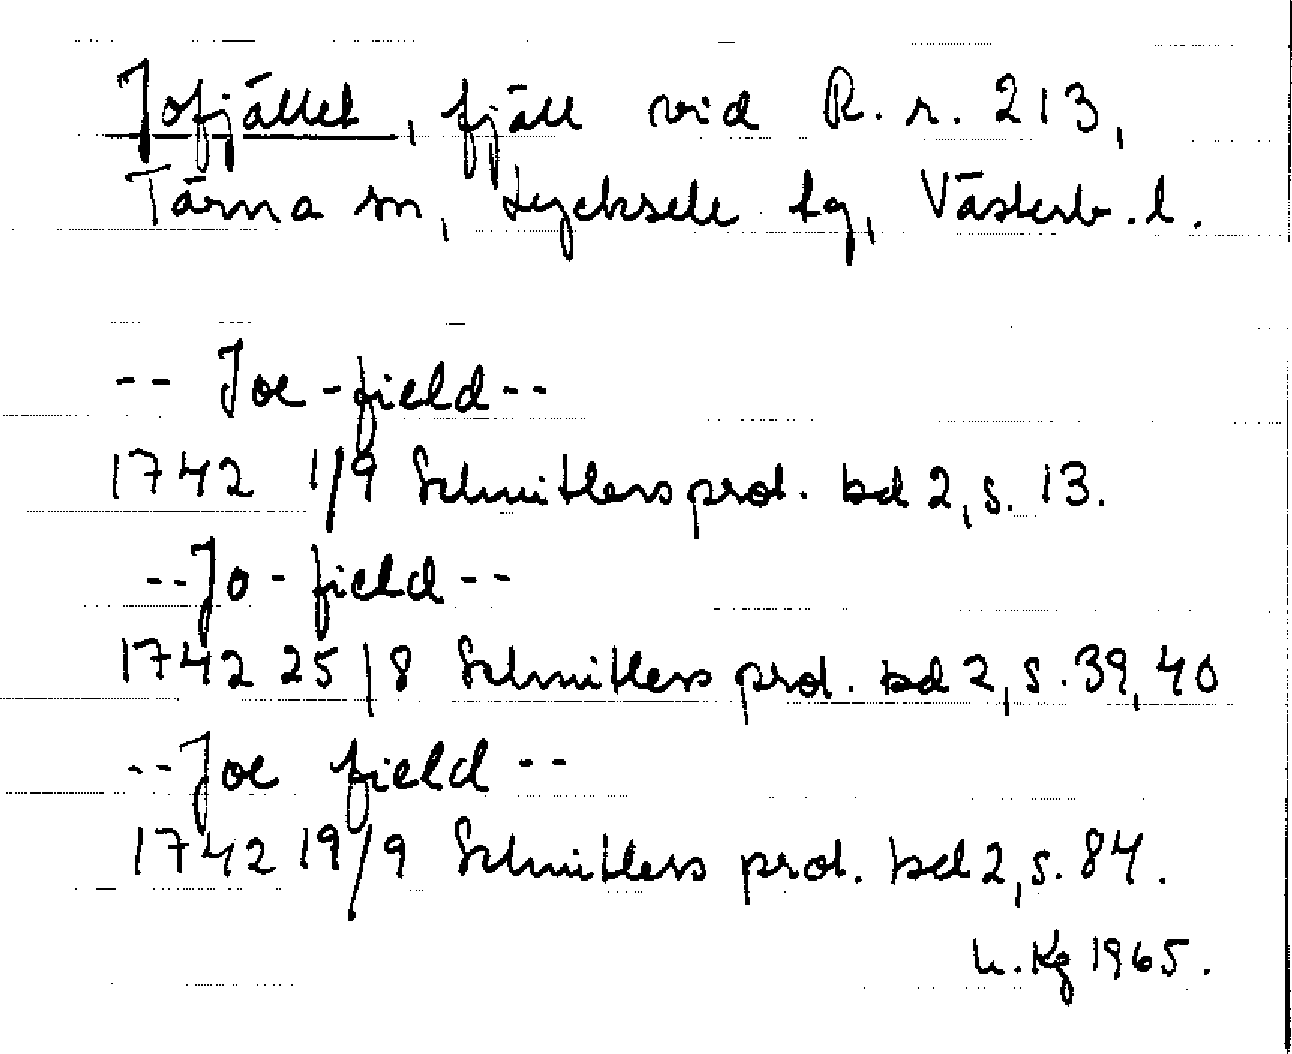 Jofjället, fjäll vid R. r. 213,
Tärna sn, Lycksele lg, Västerb. l.
-- Joe-field --
1742 1/9 Schnitlers prot. bd 2, s. 13.
-- Jo-field --
1742 25/8 Schnitlers prot. bd 2, s. 39, 40
-- Joe field --
1742 19/9 Schnitlers prot. bd 2, s. 84.
U. Kg 1965.